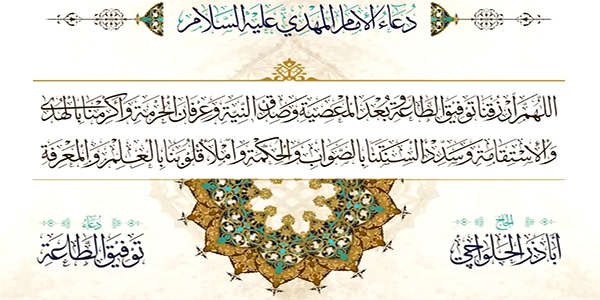 دُعَاءُ الإِمَامِ المَهْدِيِّ عَلَيْهِ السَّلَامُ
اللّهُمَّ ارْزُقْنَا تَوْفِيقَ الطَّاعَةِ وَبُعْدَ المَعْصِيَةِ وَصِدْقَ النِّيَّةِ وَعِرْفَانَ الحُرْمَةِ وَأَكْرِمْنَا بِالهُدَى
وَالِاسْتِقَامَةِ وَسَدِّدْ أَلْسِنَتَنَا بِالصَّوَابِ وَالحِكْمَةِ وَامْلَأْ قُلُوبَنَا بِالعِلْمِ وَالمَعْرِفَةِ
الحاج
أباذر الحلواجي
دُعَاءُ
تَوْفِيقَ الطَّاعَةِ